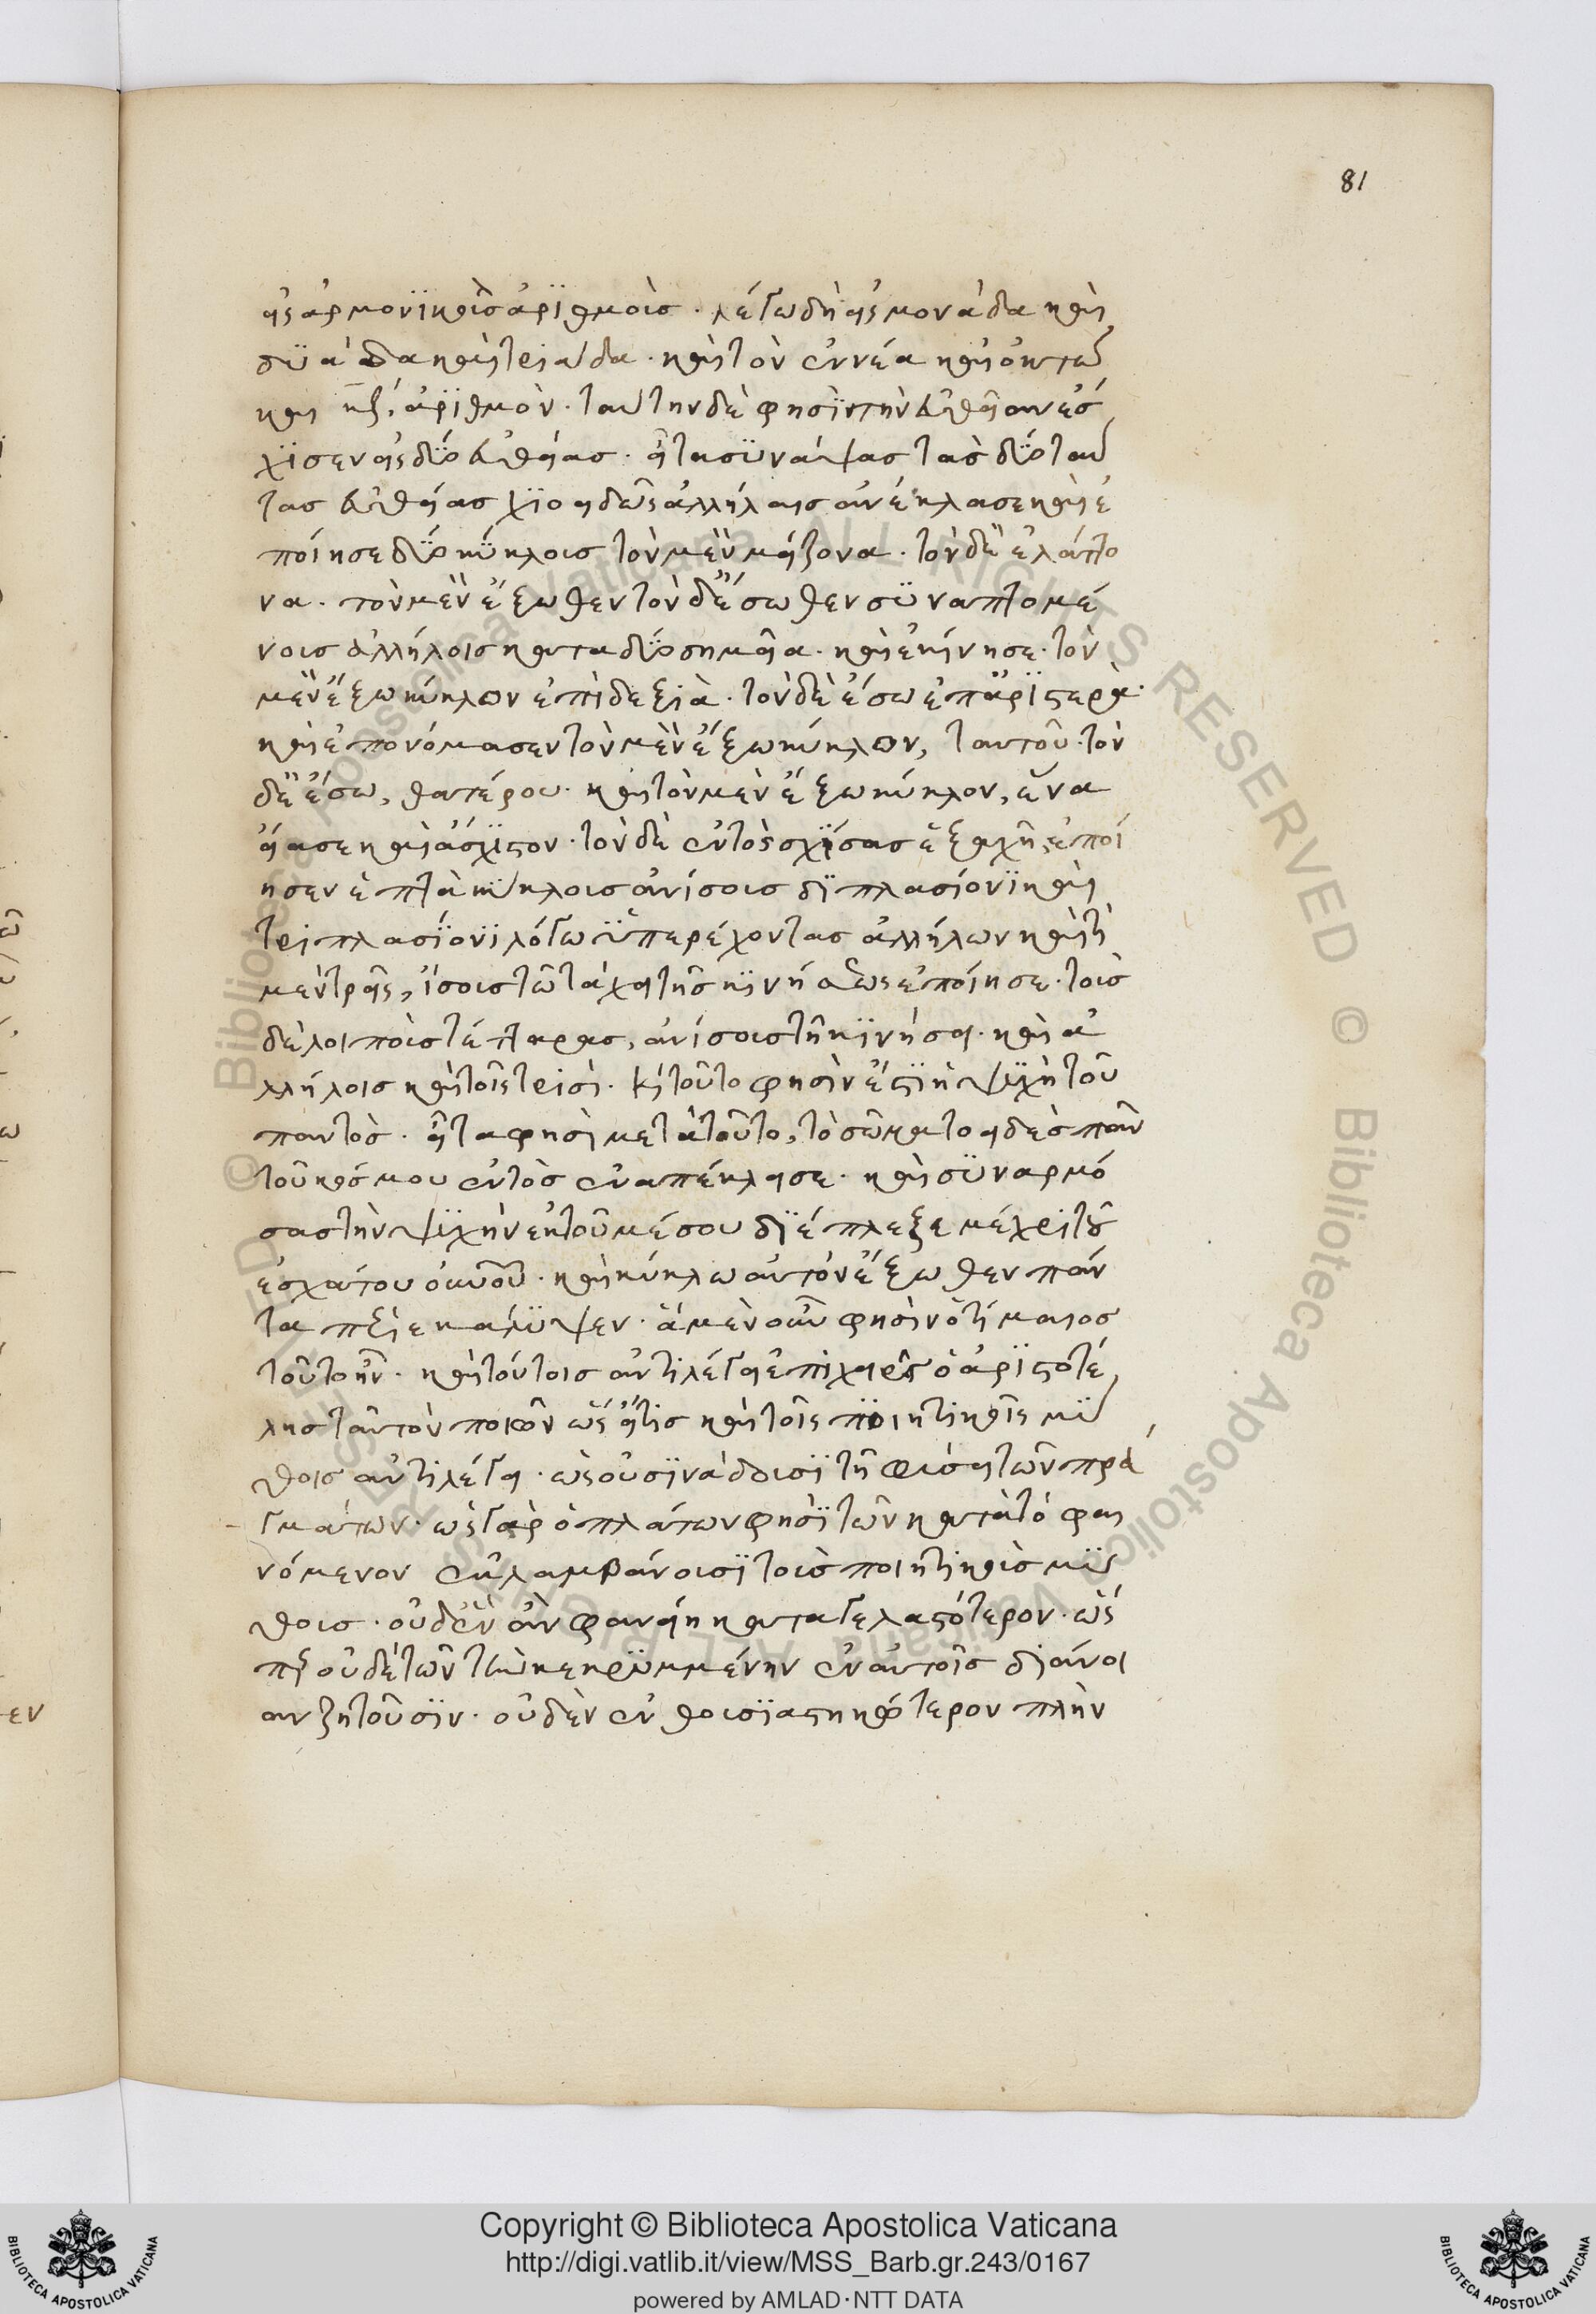 81
εἰς ἁρμονϊκοῖς ἀρϊθμοῖς · λέγω δὴ εἰς μονάδα καὶ
δϋάδα καὶ τριάδα · καὶ τὸν ἐννέα καὶ ὀκτὼ
καὶ κζ, ἀρϊθμὸν · ταύτην δὲ φησῒ τὴν εὐθεῖαν ἔσ
χϊσεν εἰς δύο εὐθείας · εἶτα συνάψας τὰς δύο ταύ
τας εὐθείας χϊοειδῶς ἀλλήλαις ἀνέκλασε καὶ ἐ
ποίησε δύο κύκλους τὸν μὲν μείζονα · τὸν δὲ ἐλάττο
να · τὸν μὲν ἔξωθεν τὸν δὲ ἔσωθεν συναπτομέ
νους ἀλλήλοις κατὰ δύο σημεῖα · καὶ ἐκίνησε · τὸν
μὲν ἔξω κύκλον ἐπὶ δεξιὰ · τὸν δὲ ἔσω ἐπ' ἀρϊστερὰ ·
καὶ ἐπονόμασεν τὸν μὲν ἔξω κύκλον, ταυτοῦ · τὸν
δὲ ἔσω, θατέρου · καὶ τὸν μὲν ἔξω κύκλον, ἕνα
εἴασε καὶ ἄσχϊστον · τὸν δὲ ἐντὸς σχίσας ἑξαχῆ, ἐποί
ησεν ἑπτὰ κύκλους ἀνίσους δϊπλασίονϊ καὶ
τριπλασίονϊ λόγω ὑπερέχοντας ἀλλήλων καὶ τὶ
μὲν τρεῖς, ἴσους τῶ τάχει τῆς κϊνήσεως ἐποίησε · τοὺς
δὲ λοιποὺς τέτταρας, ἀνίσους τῆ κϊνήσει · καὶ ἀ
λλήλοις καὶ τοῖς τρισὶ · καὶ τοῦτο φησὶν ἔστϊ ἡ ψϋχὴ τοῦ
παντὸς · εἶτα φησὶ μετὰ τοῦτο, τὸ σωματοειδὲς πᾶν
τοῦ κόσμου ἐντὸς ἐναπέκλεισε · καὶ συναρμό
σας τὴν ψϋχὴν ἐκ τοῦ μέσου δϊέπλεξε μέχρι τοῦ
ἐσχάτου οὐρανοῦ · καὶ κύκλω αὐτὸν ἔξωθεν πάν
τα περιεκάλϋψεν · ἃ μὲν οὖν φησὶν ὁ τίμαιος
τοῦτο ἦν · καὶ τούτοις ἀντιλέγειν ἐπιχειρεῖ ὁ ἀρϊστοτέ
λης ταυτὸν ποιῶν ὡς εἴ τις καὶ τοῖς ποιητικοῖς μύ
θοις ἀντιλέγει · ὡς οὐ συνάδουσϊ τῆ φύσει τῶν πρα
γμάτων · ὡς γὰρ ὁ πλάτων φησῒ τῶν κατὰ τὸ φαι
νόμενον ἐκλαμβάνουσϊ τοὺς ποιητικοὺς μύ
θους · οὐδὲν ἂν φανείη καταγελαστότερον · ὡς
περ οὐδὲ τῶν τὴν κεκρυμμένην ἐν αὐτοῖς διάνοι
αν ζητοῦσϊν · οὐδὲν ἐνθουσϊαστικώτερον πλὴν
Copyright © Biblioteca Apostolica Vaticana
http://digi.vatlib.it/view/MSS_Barb.gr.243/0167
powered by AMLAD·NTT DATA